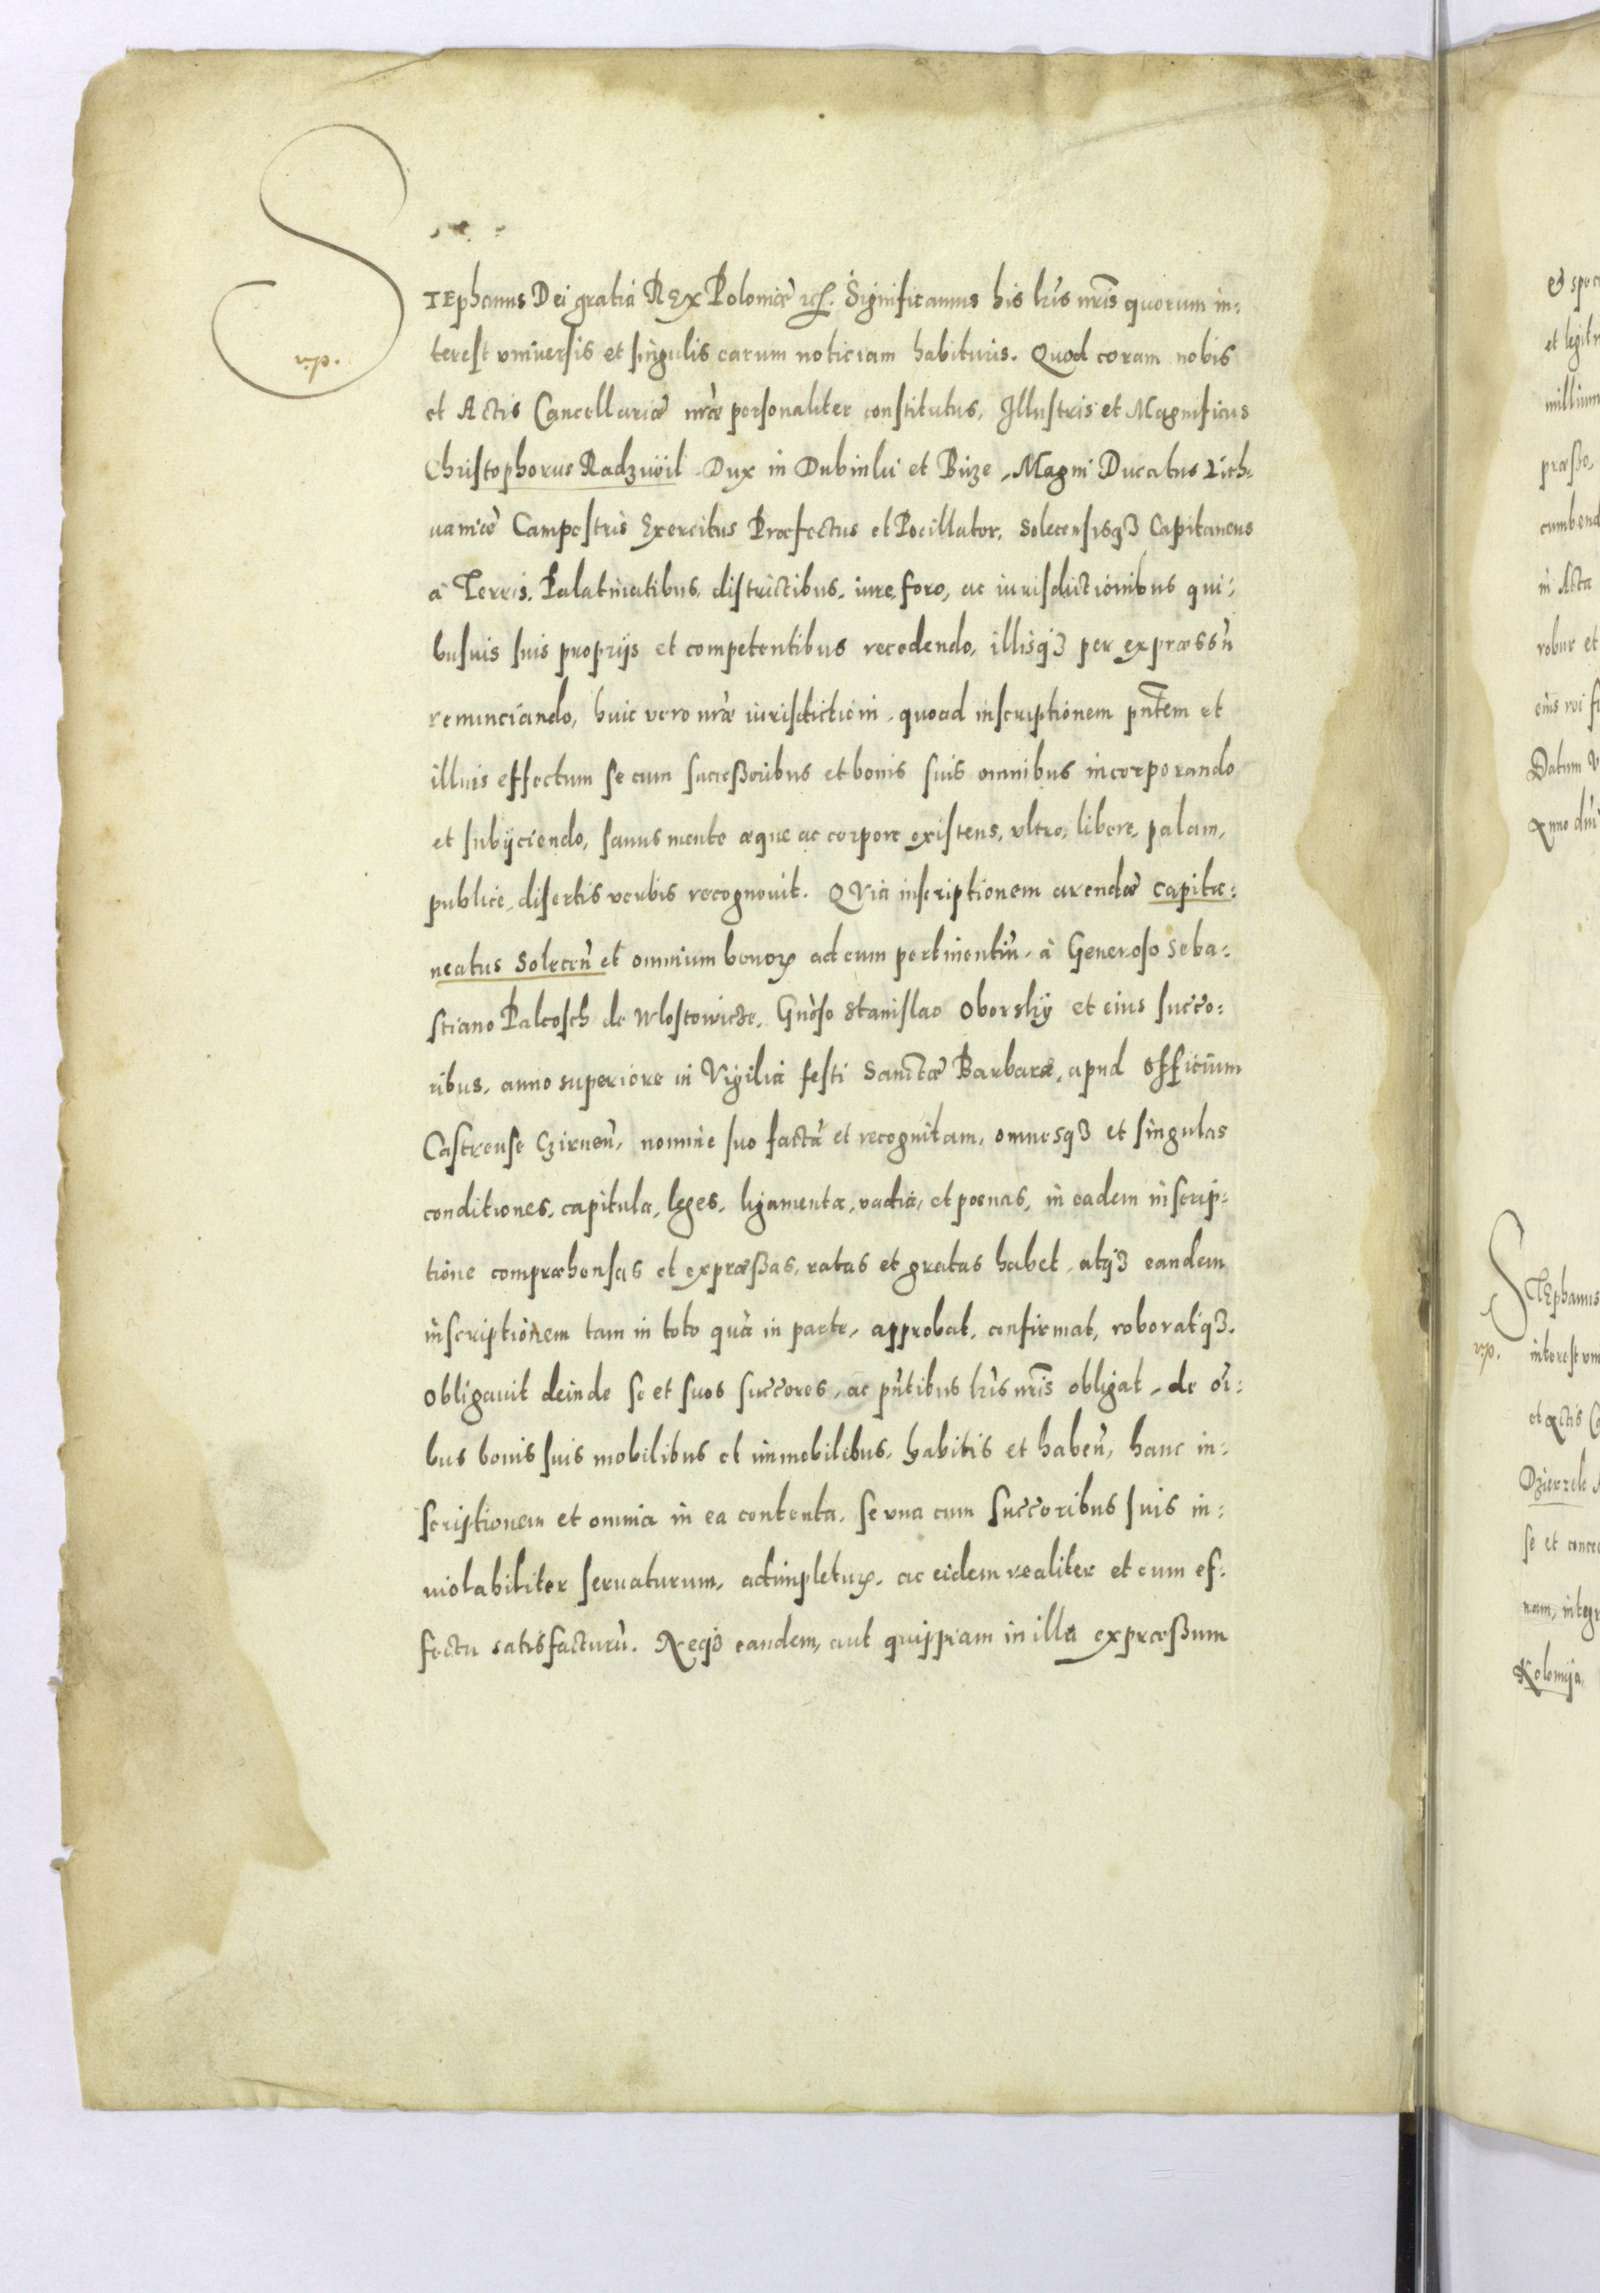 STEphanus Dei gratia REx Poloniæ etc. Significamus his lr̃is nr̃is quorum in:
terest vniuersis et singulis earum noticiam habituris. Quod coram nobis
vıp.
et Actis Cancellariæ nr̃æ personaliter constitutus, Illustris et Magnificus
Christophorus Radziwil Dux in Dubinki et Birze, Magni Ducatus Lith:
uaniæ Campestris Exercitus Præfectus et Pocillator, Solecensisqȝ Capitaneus
à Terris, Palatinatibus, districtibus, iure, foro, ac iurisdictionibus qui:
busuis suis proprijs et competentibus recedendo, illisqȝ per expræssũ
renunciando, huic vero nr̃æ iurisdictioni, quoad inscriptionem pñtem et
illius effectum se cum successoribus et bonis suis omnibus incorporando
et subijciendo, sanus mente æque ac corpore existens, vltro, libere, palam,
publice, disertis verbis recognouit. QVia inscriptionem arendæ Capita:
neatus Solecen̄ et omnium bonoꝝ ad eum pertinentiũ, à Generoso Seba:
stiano Paleosch de Wlostowicze, Gñoso Stanislao Oborskÿ et eius succo:
ribus, anno superiore in Vigilia festi Sanctæ Barbaræ, apud Officium
Castrense Czirnen̄, nomine suo factã et recognitam, omnesqȝ et singulas
conditiones, capitula, leges, ligamenta, vadia, et poenas, in eadem inscrip:
tione compræhensas et expræssas, ratas et gratas habet, atqȝ eandem
inscriptionem tam in toto quã in parte, approbat, confirmat, roboratqȝ.
Obligauit deinde se et suos succores, ac pñtibus lr̃is nr̃is obligat, de oĩ:
bus bonis suis mobilibus et immobilibus, habitis et haben̄, hanc in:
scriptionem et omnia in ea contenta, se vna cum succoribus suis in:
uiolabiliter seruaturum, adimpletuꝝ, ac eidem realiter et cum ef:
fectu satisfacturũ. Neqȝ eandem, aut quippiam in illa expræssum
et legit
in Acta
robur et
Datum V
STEphanus
vıp.
et actis
se et
Kolomija,